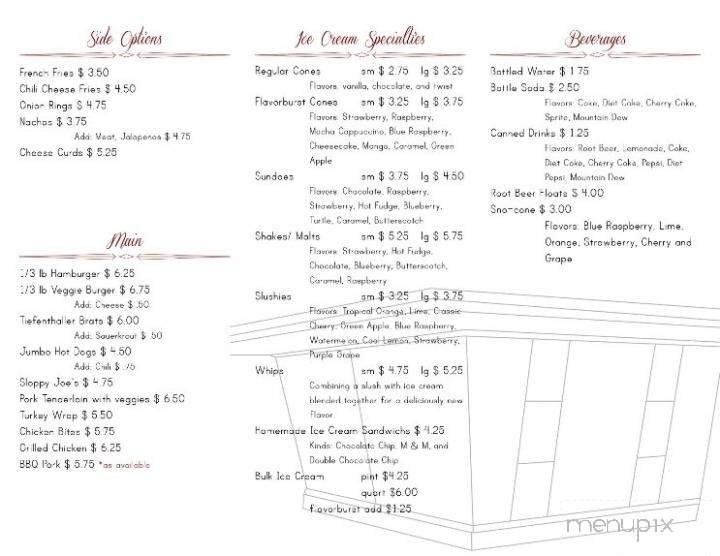 Side Options
French Fries $ 3.50
Chili Cheese Fries $ 4.50
Onion Rings $ 4.75
Nachos $ 3.75
Add: Meat, Jalapenos $ 4.75
Cheese Curds $ 5.25
Main
1/3 lb Hamburger $ 6.25
1/3 lb Veggie Burger $ 6.75
Add: Cheese $ .50
Tiefenthaller Brats $ 6.00
Add: Sauerkraut $ .50
Jumbo Hot Dogs $ 4.50
Add: Chili $ .75
Sloppy Joe's $ 4.75
Pork Tenderloin with veggies $ 6.50
Turkey Wrap $ 5.50
Chicken Bites $ 5.75
Grilled Chicken $ 6.25
BBQ Pork $ 5.75 *as available
Ice Cream Specialties
Regular Cones sm $ 2.75 lg $ 3.25
Flavors: vanilla, chocolate, and twist
Flavorburst Cones sm $ 3.25 lg $ 3.75
Flavors: Strawberry, Raspberry,
Mocha Cappuccino, Blue Raspberry,
Cheesecake, Mango, Caramel, Green
Apple
Sundaes sm $ 3.75 lg $ 4.50
Flavors: Chocolate, Raspberry,
Strawberry, Hot Fudge, Blueberry,
Turtle, Caramel, Butterscotch
Shakes/ Malts sm $ 5.25 lg $ 5.75
Flavors: Strawberry, Hot Fudge,
Chocolate, Blueberry, Butterscotch,
Caramel, Raspberry
Slushies sm $ 3.25 lg $ 3.75
Flavors: Tropical Orange, Lime, Classic
Cherry, Green Apple, Blue Raspberry,
Watermelon, Cool Lemon, Strawberry,
Purple Grape
Whips sm $ 4.75 lg $ 5.25
Combining a slush with ice cream
blended together for a deliciously new
Flavor.
Homemade Ice Cream Sandwichs $ 4.25
Kinds: Chocolate Chip, M & M, and
Double Chocolate Chip
Bulk Ice Cream pint $4.25
quart $6.00
flavorburst add $1.25
Beverages
Bottled Water $ 1.75
Bottle Soda $ 2.50
Flavors: Coke, Diet Coke, Cherry Coke,
Sprite, Mountain Dew
Canned Drinks $ 1.25
Flavors: Root Beer, Lemonade, Coke,
Diet Coke, Cherry Coke, Pepsi, Diet
Pepsi, Mountain Dew
Root Beer Floats $ 4.00
Sno-cone $ 3.00
Flavors: Blue Raspberry, Lime,
Orange, Strawberry, Cherry and
Grape
menupix